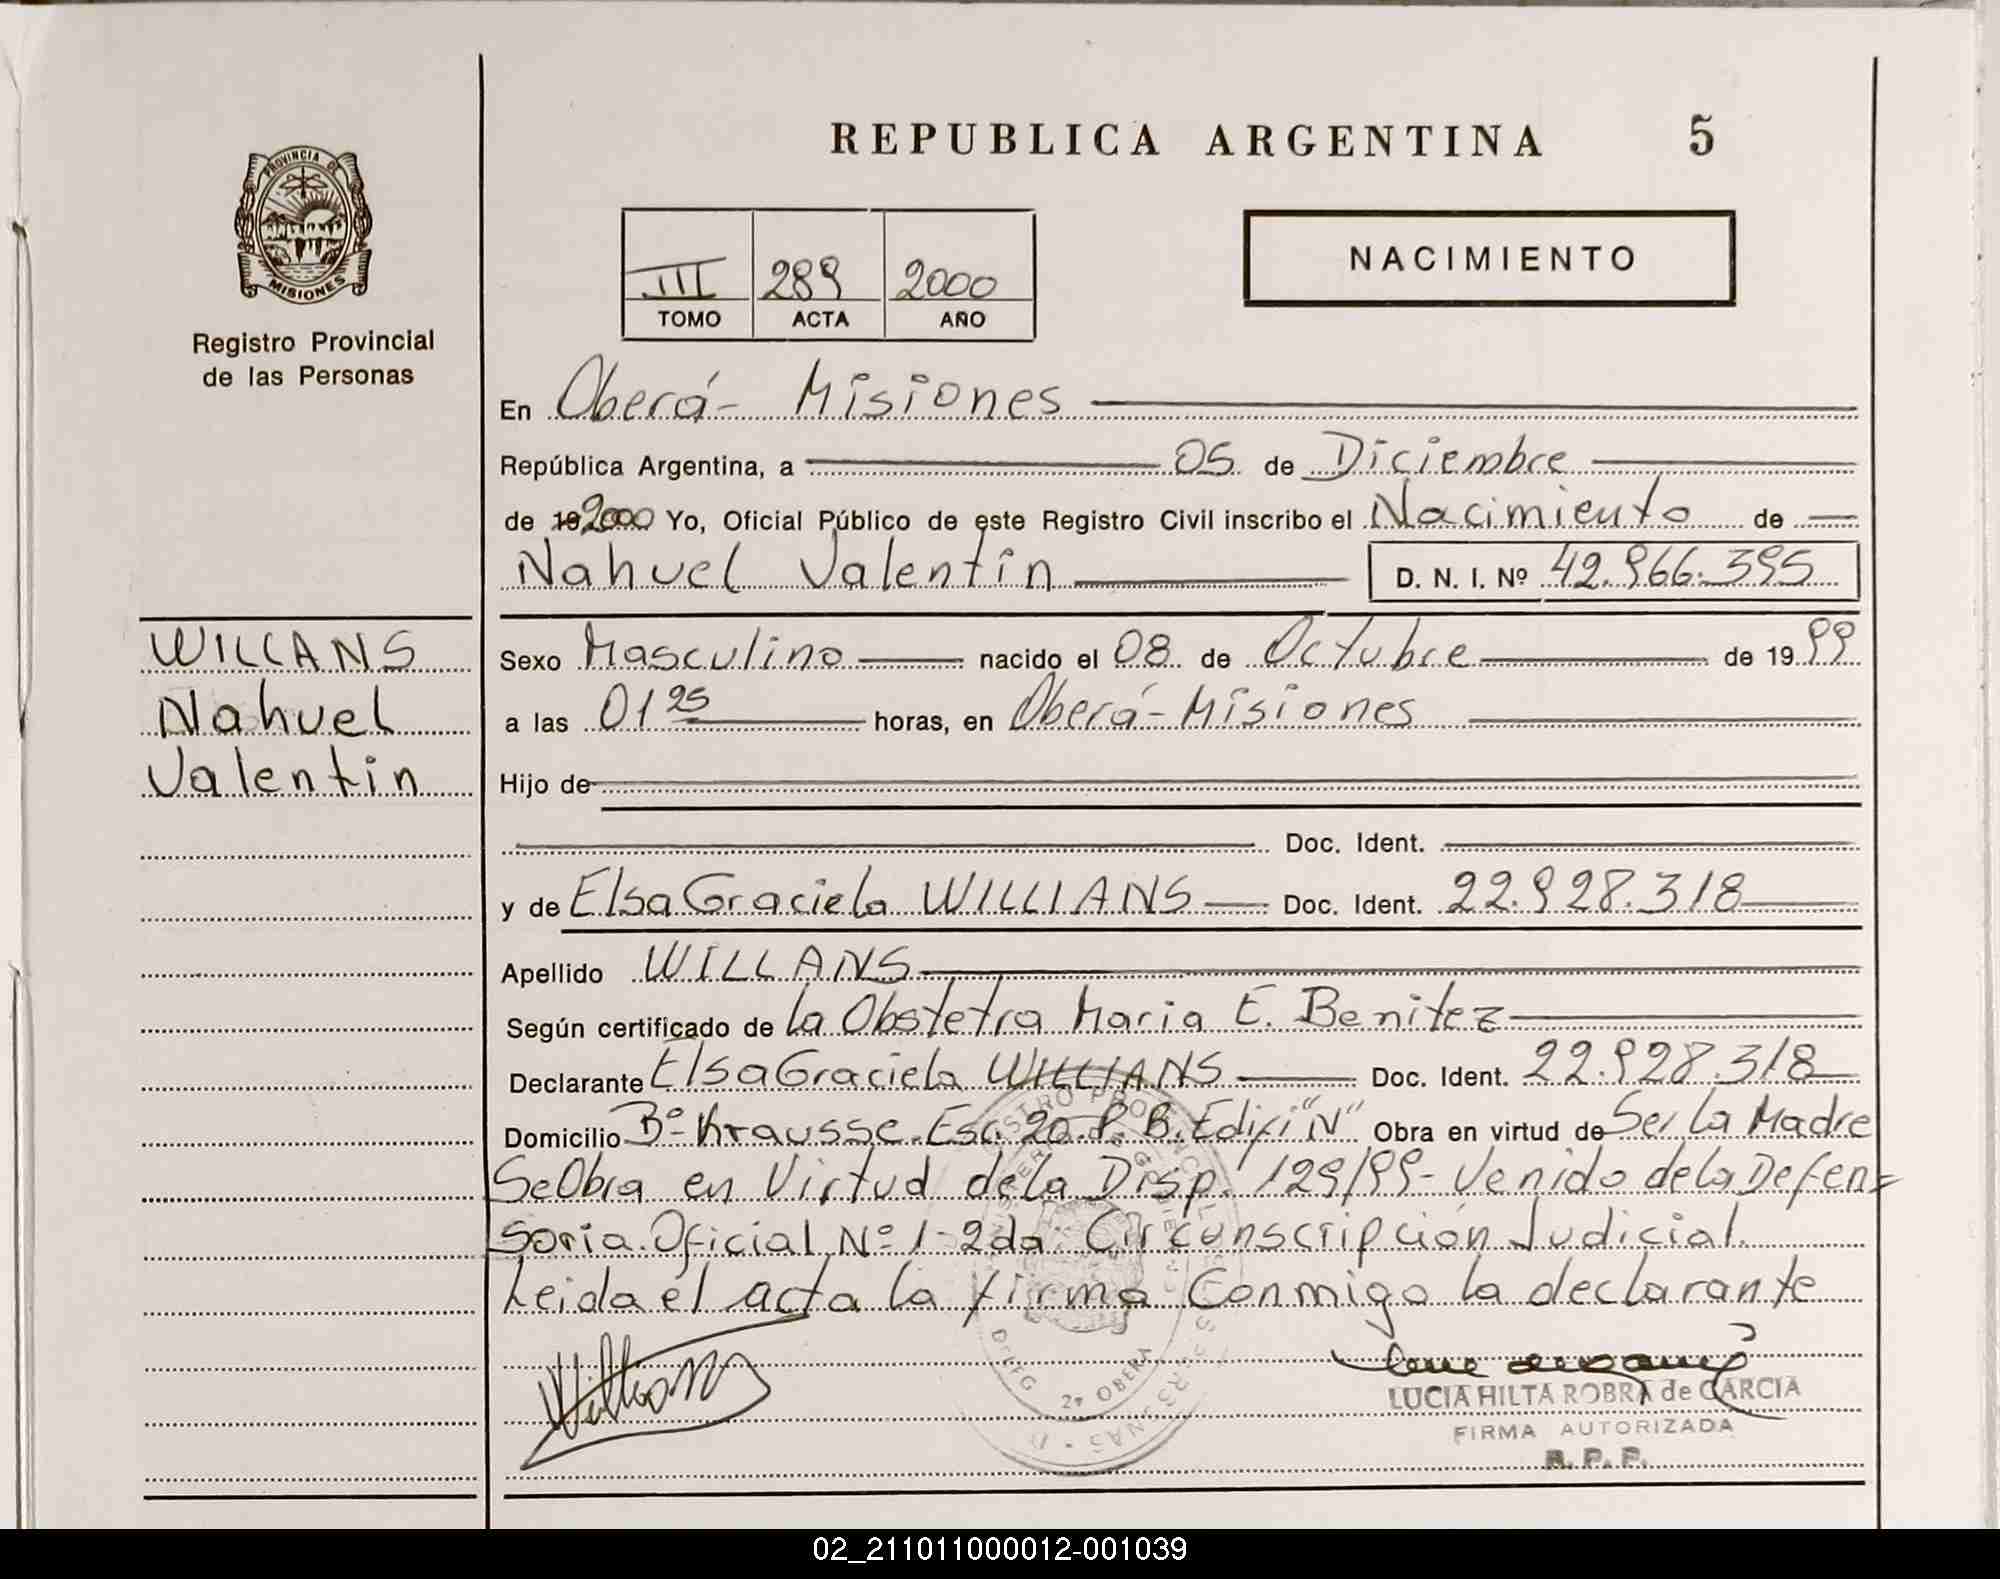 REPUBLICA ARGENTINA 5
PROVINCIA DE
MISIONES
Registro Provincial
de las Personas
III 289 2000
TOMO ACTA AÑO
NACIMIENTO
En Oberá - Misiones
República Argentina, a 05 de Diciembre
de 19 2000 Yo, Oficial Público de este Registro Civil inscribo el Nacimiento de
Nahuel Valentin D. N. I. Nº 42.966.395
WILLANS
Nahuel
Valentin
Sexo Masculino nacido el 08 de Octubre de 1999
a las 01 25 horas, en Oberá - Misiones
Hijo de
Doc. Ident.
y de Elsa Graciela WILLIANS Doc. Ident. 22.928.318
Apellido WILLANS
Según certificado de la Obstetra Maria E. Benitez
Declarante Elsa Graciela WILLIANS Doc. Ident. 22.928.318
Domicilio Bº Krausse. Esc. 20. P. B. Edifi "N" Obra en virtud de Ser la Madre
Se Obra en Virtud de la Disp. 129/99 - Venido de la Defen-
soria Oficial Nº 1 - 2da Circunscripción Judicial.
Leida el acta la firma Conmigo la declarante
2ª OBERA
LUCIA HILTA ROBRA de GARCIA
FIRMA AUTORIZADA
R. P. P.
02_211011000012-001039